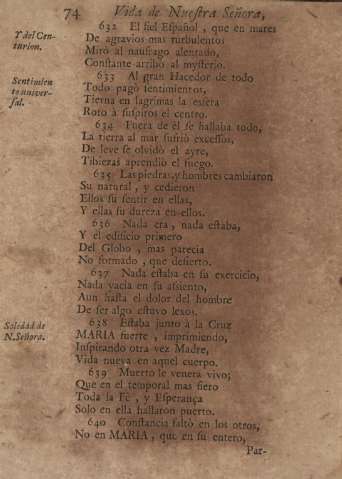 74 Vida de Nuestra Señora,
632 El fiel Español, que en mares
Y del Cen-
turion.
De agravios mas turbulentos
Mirò al naufrago alentado,
Constante arribò al mysterio.
633 Al gran Hacedor de todo
Sentimien
to univer-
sal.
Todo pagò sentimientos,
Tierna en lagrimas la esfera
Roto à suspiros el centro.
634 Fuera de èl se hallaba todo,
La tierra al mar sufriò excessos,
De leve se olvidò el ayre,
Tibiezas aprendiò el fuego.
635 Las piedras, y hombres cambiaron
Su natural, y cedieron
Ellos su sentir en ellas,
Y ellas su dureza en ellos.
636 Nada era, nada estaba,
Y el edificio primero
Del Globo, mas parecia
No formado, que desierto.
637 Nada estaba en su exercicio,
Nada yacía en su assiento,
Aun hasta el dolor del hombre
De ser algo estuvo lexos.
Soledad de
N. Señora.
638 Estaba junto à la Cruz
MARIA fuerte, imprimiendo,
Inspirando otra vez Madre,
Vida nueva en aquel cuerpo.
639 Muerto le venera vivo;
Que en el temporal mas fiero
Toda la Fè, y Esperança
Solo en ella hallaron puerto.
640 Constancia faltò en los otros,
No en MARIA, que en su entero,
Par-